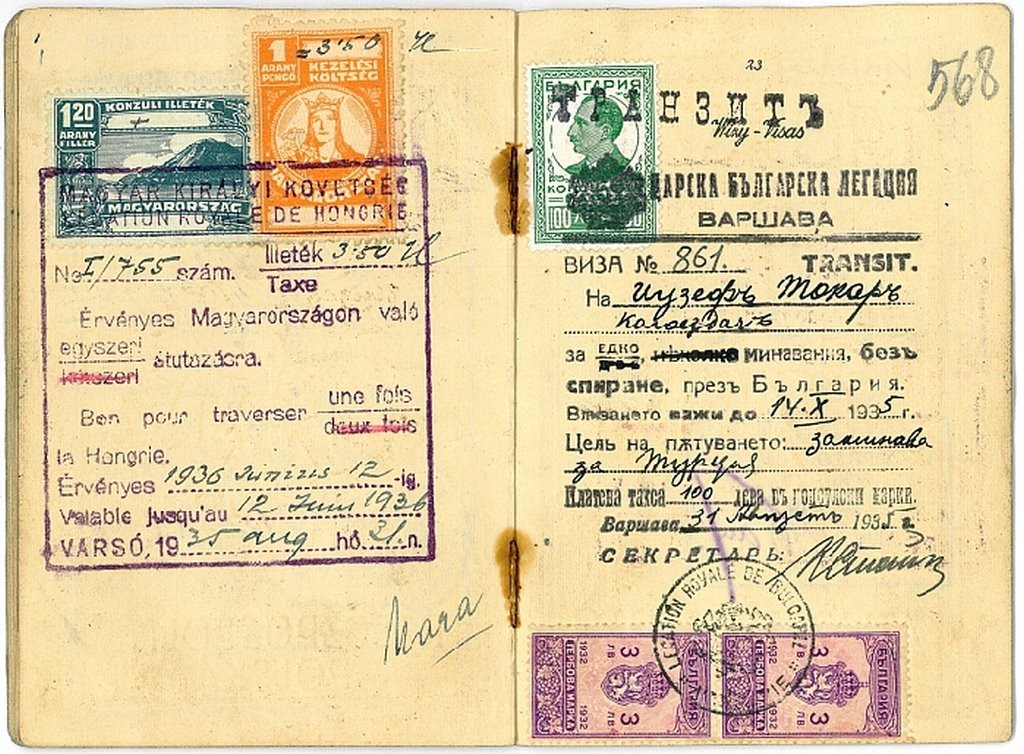 = 3'50
1
ARANY PENGŐ
KEZELÉSI KÖLTSÉG
1.20
ARANY FILLÉR
KONZULI ILLETÉK
MAGYARORSZÁG
MAGYAR KIRÁLYI KÖVETSÉG
LEGATION ROYALE DE HONGRIE
No I/755 szám. Illeték 3.50
Taxe
Érvényes Magyarországon való
egyszeri
kétszeri átutazásra.
Bon pour traverser une fois
deux fois
la Hongrie.
Érvényes 1936 Junius 12 -ig.
Valable jusqu'au 12 Juin 1936
VARSÓ, 1935 aug hó 31. n.
23
568
БЪЛГАРИЯ
ТРАНЗИТЪ
Wizy-Visas
100
ЦАРСКА БЪЛГАРСКА ЛЕГАЦИЯ
ВАРШАВА
ВИЗА № 861. TRANSIT.
На Иузефъ Токаръ
за ЕДНО, нѣколко минавания, безъ
спиране, презъ България.
Влизането важи до 14.X 1935 г.
Цель на пѫтуването: заминава
за Турция
Платена такса 100 лева въ консулски марки.
Варшава 31 Августъ 1935 г.
СЕКРЕТАРЬ:
LEGATION ROYALE DE BULGARIE
1932 ГЕРБОВА МАРКА 1932
3 ЛВ 3 ЛВ
БЪЛГАРИЯ
1932 ГЕРБОВА МАРКА 1932
3 ЛВ 3 ЛВ
БЪЛГАРИЯ